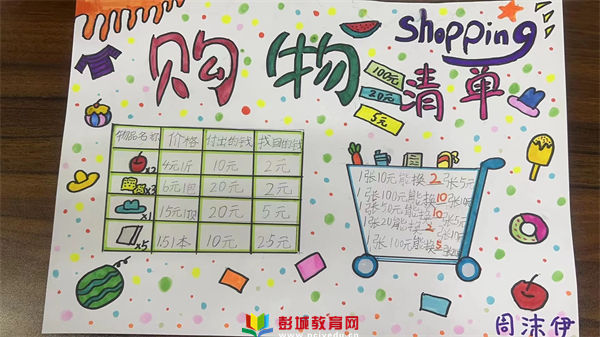 购物清单
shopping
100元
20元
5元
物品名称 价格 付出的钱 找回的钱
×2 4元1斤 10元 2元
×3 6元1包 20元 2元
×1 15元1顶 20元 5元
×5 1.51本 10元 25元
1张10元能换2张5元
1张100元能换10张10元
1张50元能换10张5元
1张20元能换2张10元
1张100元能换5
周沫伊
彭城教育网